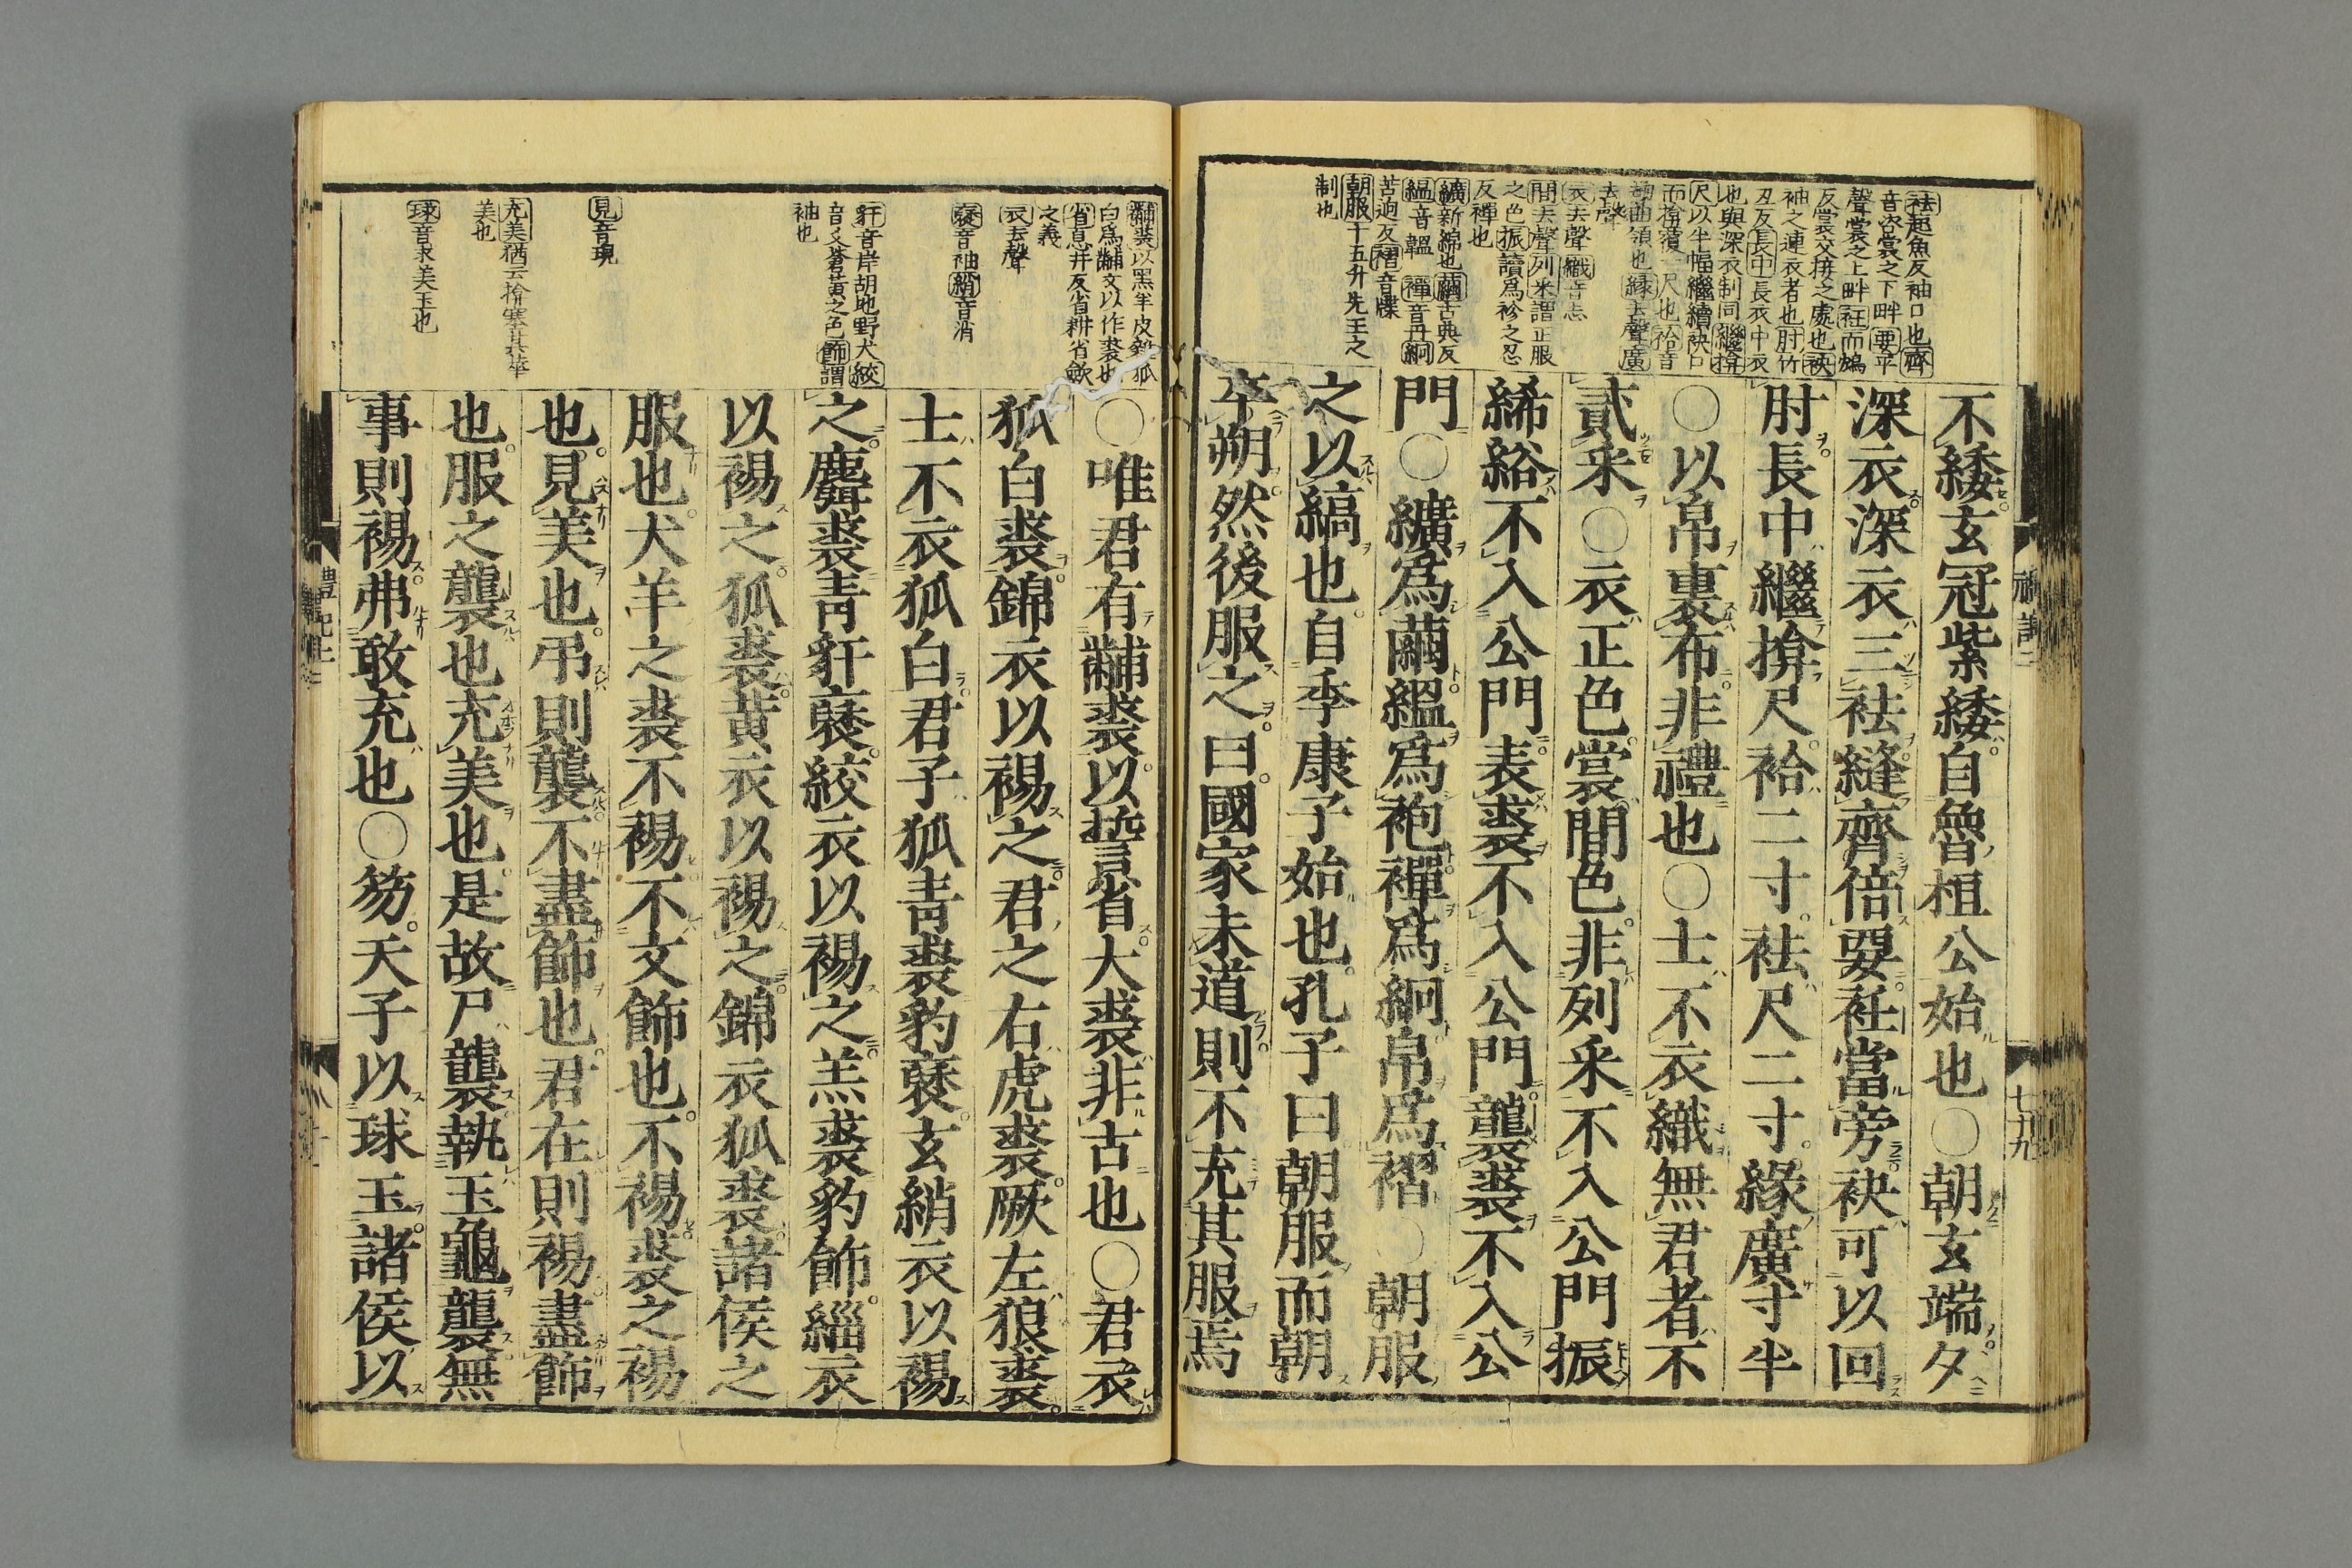 袪起魚反袖口也齊
音咨裳之下畔要平
聲裳之上畔衽而鴆
反裳交接之處也袂
袖之連衣者也肘竹
丑反長中長衣中衣
也與深衣制同繼揜
尺以半幅繼續袂口
而揜覆一尺也袷音
劫曲領也緣去聲廣
去聲
衣去聲織音志
間去聲列采謂正服
之色振讀爲袗之忍
反襌也
纊新綿也繭古典反
縕音韞襌音丹絅
苦逈反褶音牒
朝服十五升先王之
制也
不緌玄冠紫緌自魯桓公始也○朝玄端夕
深衣深衣三袪縫齊倍要衽當旁袂可以回
肘長中繼揜尺袷二寸袪尺二寸緣廣寸半
○以帛裏布非禮也○士不衣織無君者不
貳采○衣正色裳間色非列采不入公門振
絺綌不入公門表裘不入公門襲裘不入公
門○纊爲繭縕爲袍襌爲絅帛爲褶○朝服
之以縞也自季康子始也孔子曰朝服而朝
卒朔然後服之曰國家未道則不充其服焉
七十九
黼裘以黑羊皮雜狐
白爲黼文以作裘也
省息井反省耕省斂
之義
衣去聲
褎音袖綃音消
豻音岸胡地野犬絞
音爻蒼黃之色飾謂
袖也
見音現
充美猶云揜塞其華
美也
球音求美玉也
○唯君有黼裘以誓省大裘非古也○君衣
狐白裘錦衣以裼之君之右虎裘厥左狼裘
士不衣狐白君子狐靑裘豹褎玄綃衣以裼
之麛裘靑豻褎絞衣以裼之羔裘豹飾緇衣
以裼之狐裘黃衣以裼之錦衣狐裘諸侯之
服也犬羊之裘不裼不文飾也不裼裘之裼
也見美也弔則襲不盡飾也君在則裼盡飾
也服之襲也充美也是故尸襲執玉龜襲無
事則裼弗敢充也○笏天子以球玉諸侯以